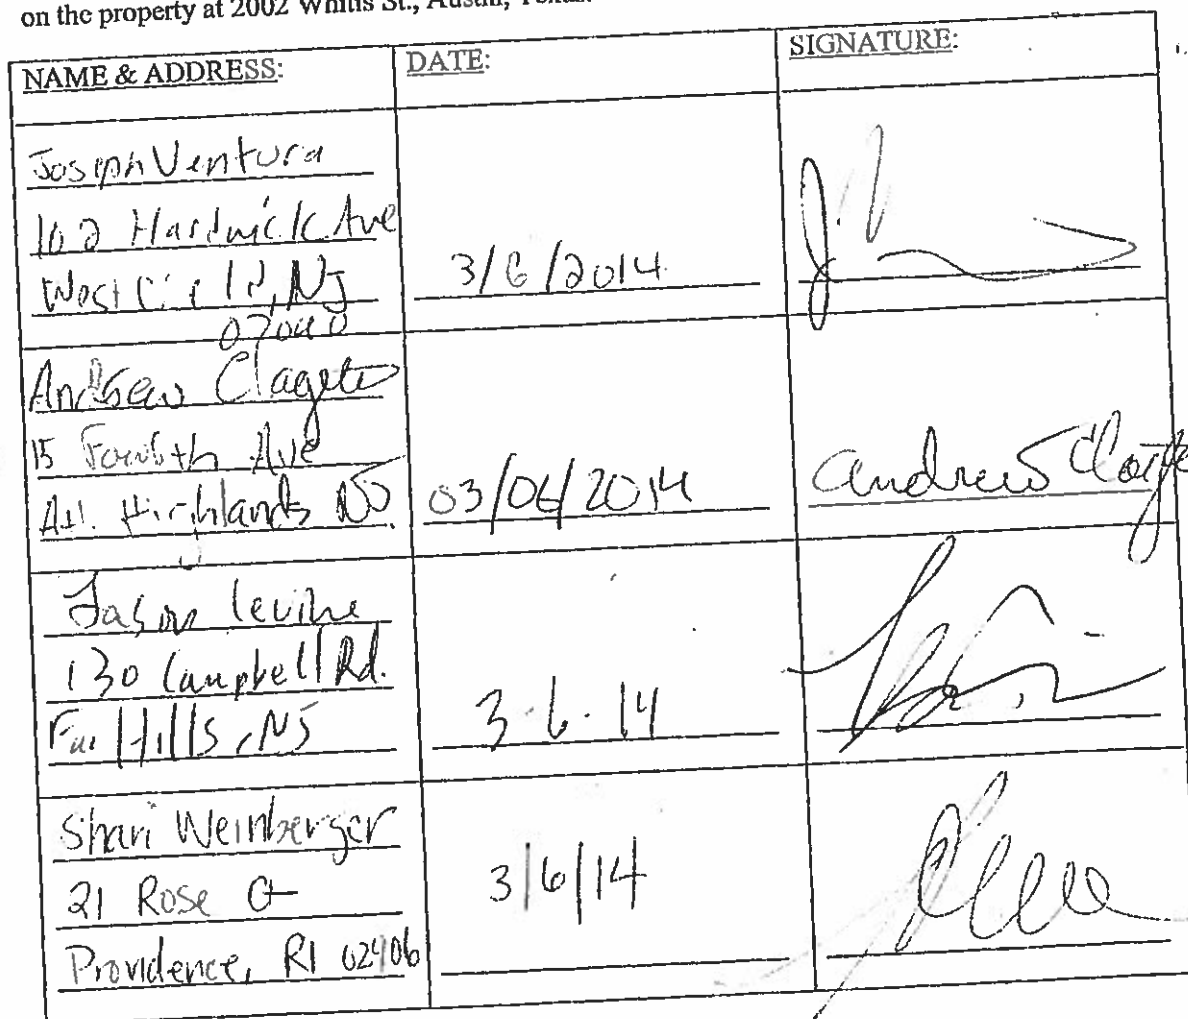 on the property at 2002 Whitis St., Austin, Texas
NAME & ADDRESS: DATE: SIGNATURE:
Joseph Ventura
102 Hardwick Ave
Westfield, NJ 3/6/2014
07090
Andrew Clagett
15 Fourth Ave
Atl. Highlands NJ 03/06/2014 Andrew
Jason Levine
130 Campbell Rd.
Far Hills, NJ 3.6.14
Shari Weinberger
21 Rose Ct 3/6/14
Providence, RI 02906